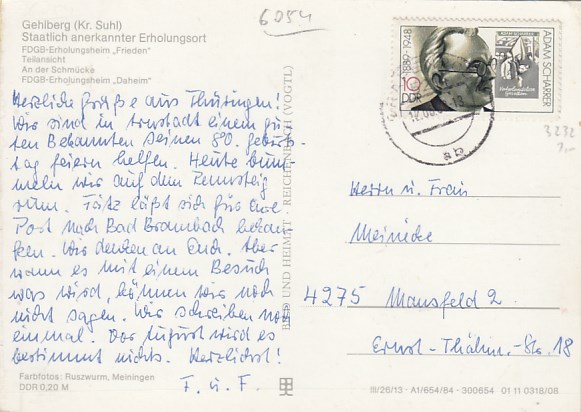 6054
Gehlberg (Kr. Suhl)
Staatlich anerkannter Erholungsort
FDGB-Erholungsheim „Frieden"
Teilansicht
An der Schmücke
FDGB-Erholungsheim „Daheim"
1889-1948
10
DDR
ADAM SCHARRER
3232
Herzliche Grüße aus Thüringen!
Wir sind in Arnstadt einem gu-
ten Bekannten seinen 80. Geburts-
tag feiern helfen. Heute bum-
meln wir auf dem Rennsteig
rum. Fritz läßt sich für die
Post nach Bad Brambach bedan-
ken. Wir denken an Euch. Aber
wann es mit einem Besuch
was wird, können wir noch
nicht sagen. Wir schreiben noch
einmal. Vor August wird es
bestimmt nichts. Herzlichst!
F. u. F.
BILD UND HEIMAT · REICHENBACH (VOGTL)
Herrn u. Frau
Meinicke
4275 Mansfeld 2
Ernst-Thälm.-Str. 18
Farbfotos: Ruszwurm, Meiningen
DDR 0,20 M
III/26/13 · A1/654/84 · 300654 01 11 0318/08